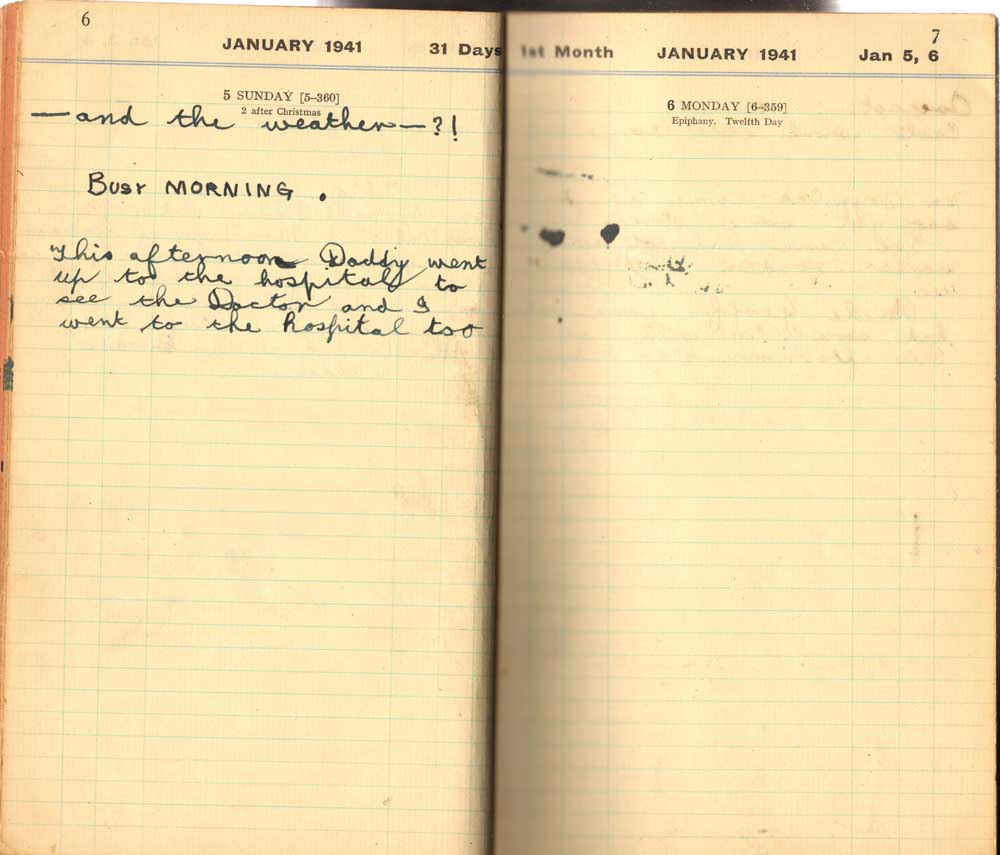 6
JANUARY 1941 31 Days
5 SUNDAY [5–360]
2 after Christmas
—and the weather—?!
BUSY MORNING.
This afternoon Daddy went
up to the hospital to
see the Doctor and I
went to the hospital too
7
1st Month JANUARY 1941 Jan 5, 6
6 MONDAY [6–359]
Epiphany. Twelfth Day